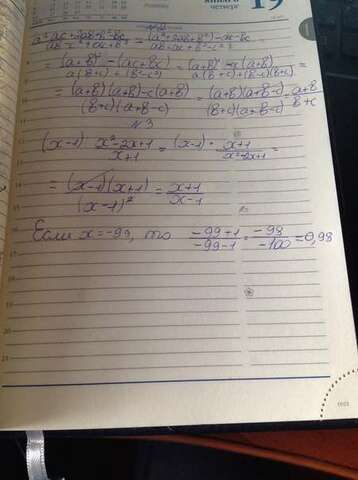 января
четверг 19
a²-ac+2ab+b²-bc / ab-c²+ac+b² = (a²+2ab+b²)-ac-bc / ab+ac+b²-c² =
= (a+b)²-(ac+bc) / a(b+c)+(b²-c²) = (a+b)²-c(a+b) / a(b+c)+(b-c)(b+c) =
= (a+b)(a+b)-c(a+b) / (b+c)(a+b-c) = (a+b)(a+b-c) / (b+c)(a+b-c) = a+b / b+c
№3
(x-1) : x²-2x+1 / x+1 = (x-1) · x+1 / x²-2x+1 =
= (x-1)(x+1) / (x-1)² = x+1 / x-1
Если x=-99, то -99+1 / -99-1 = -98 / -100 = 0,98